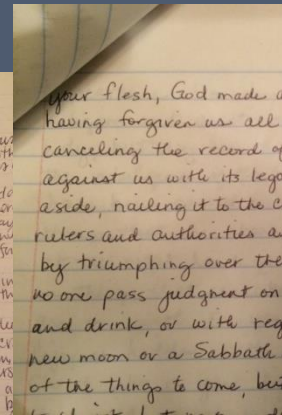 your flesh, God made
having forgiven us all
canceling the record of
against us with its lega
aside, nailing it to the c
rulers and authorities a
by triumphing over the
no one pass judgment on
and drink, or with reg
new moon or a Sabbath
of the things to come, bu